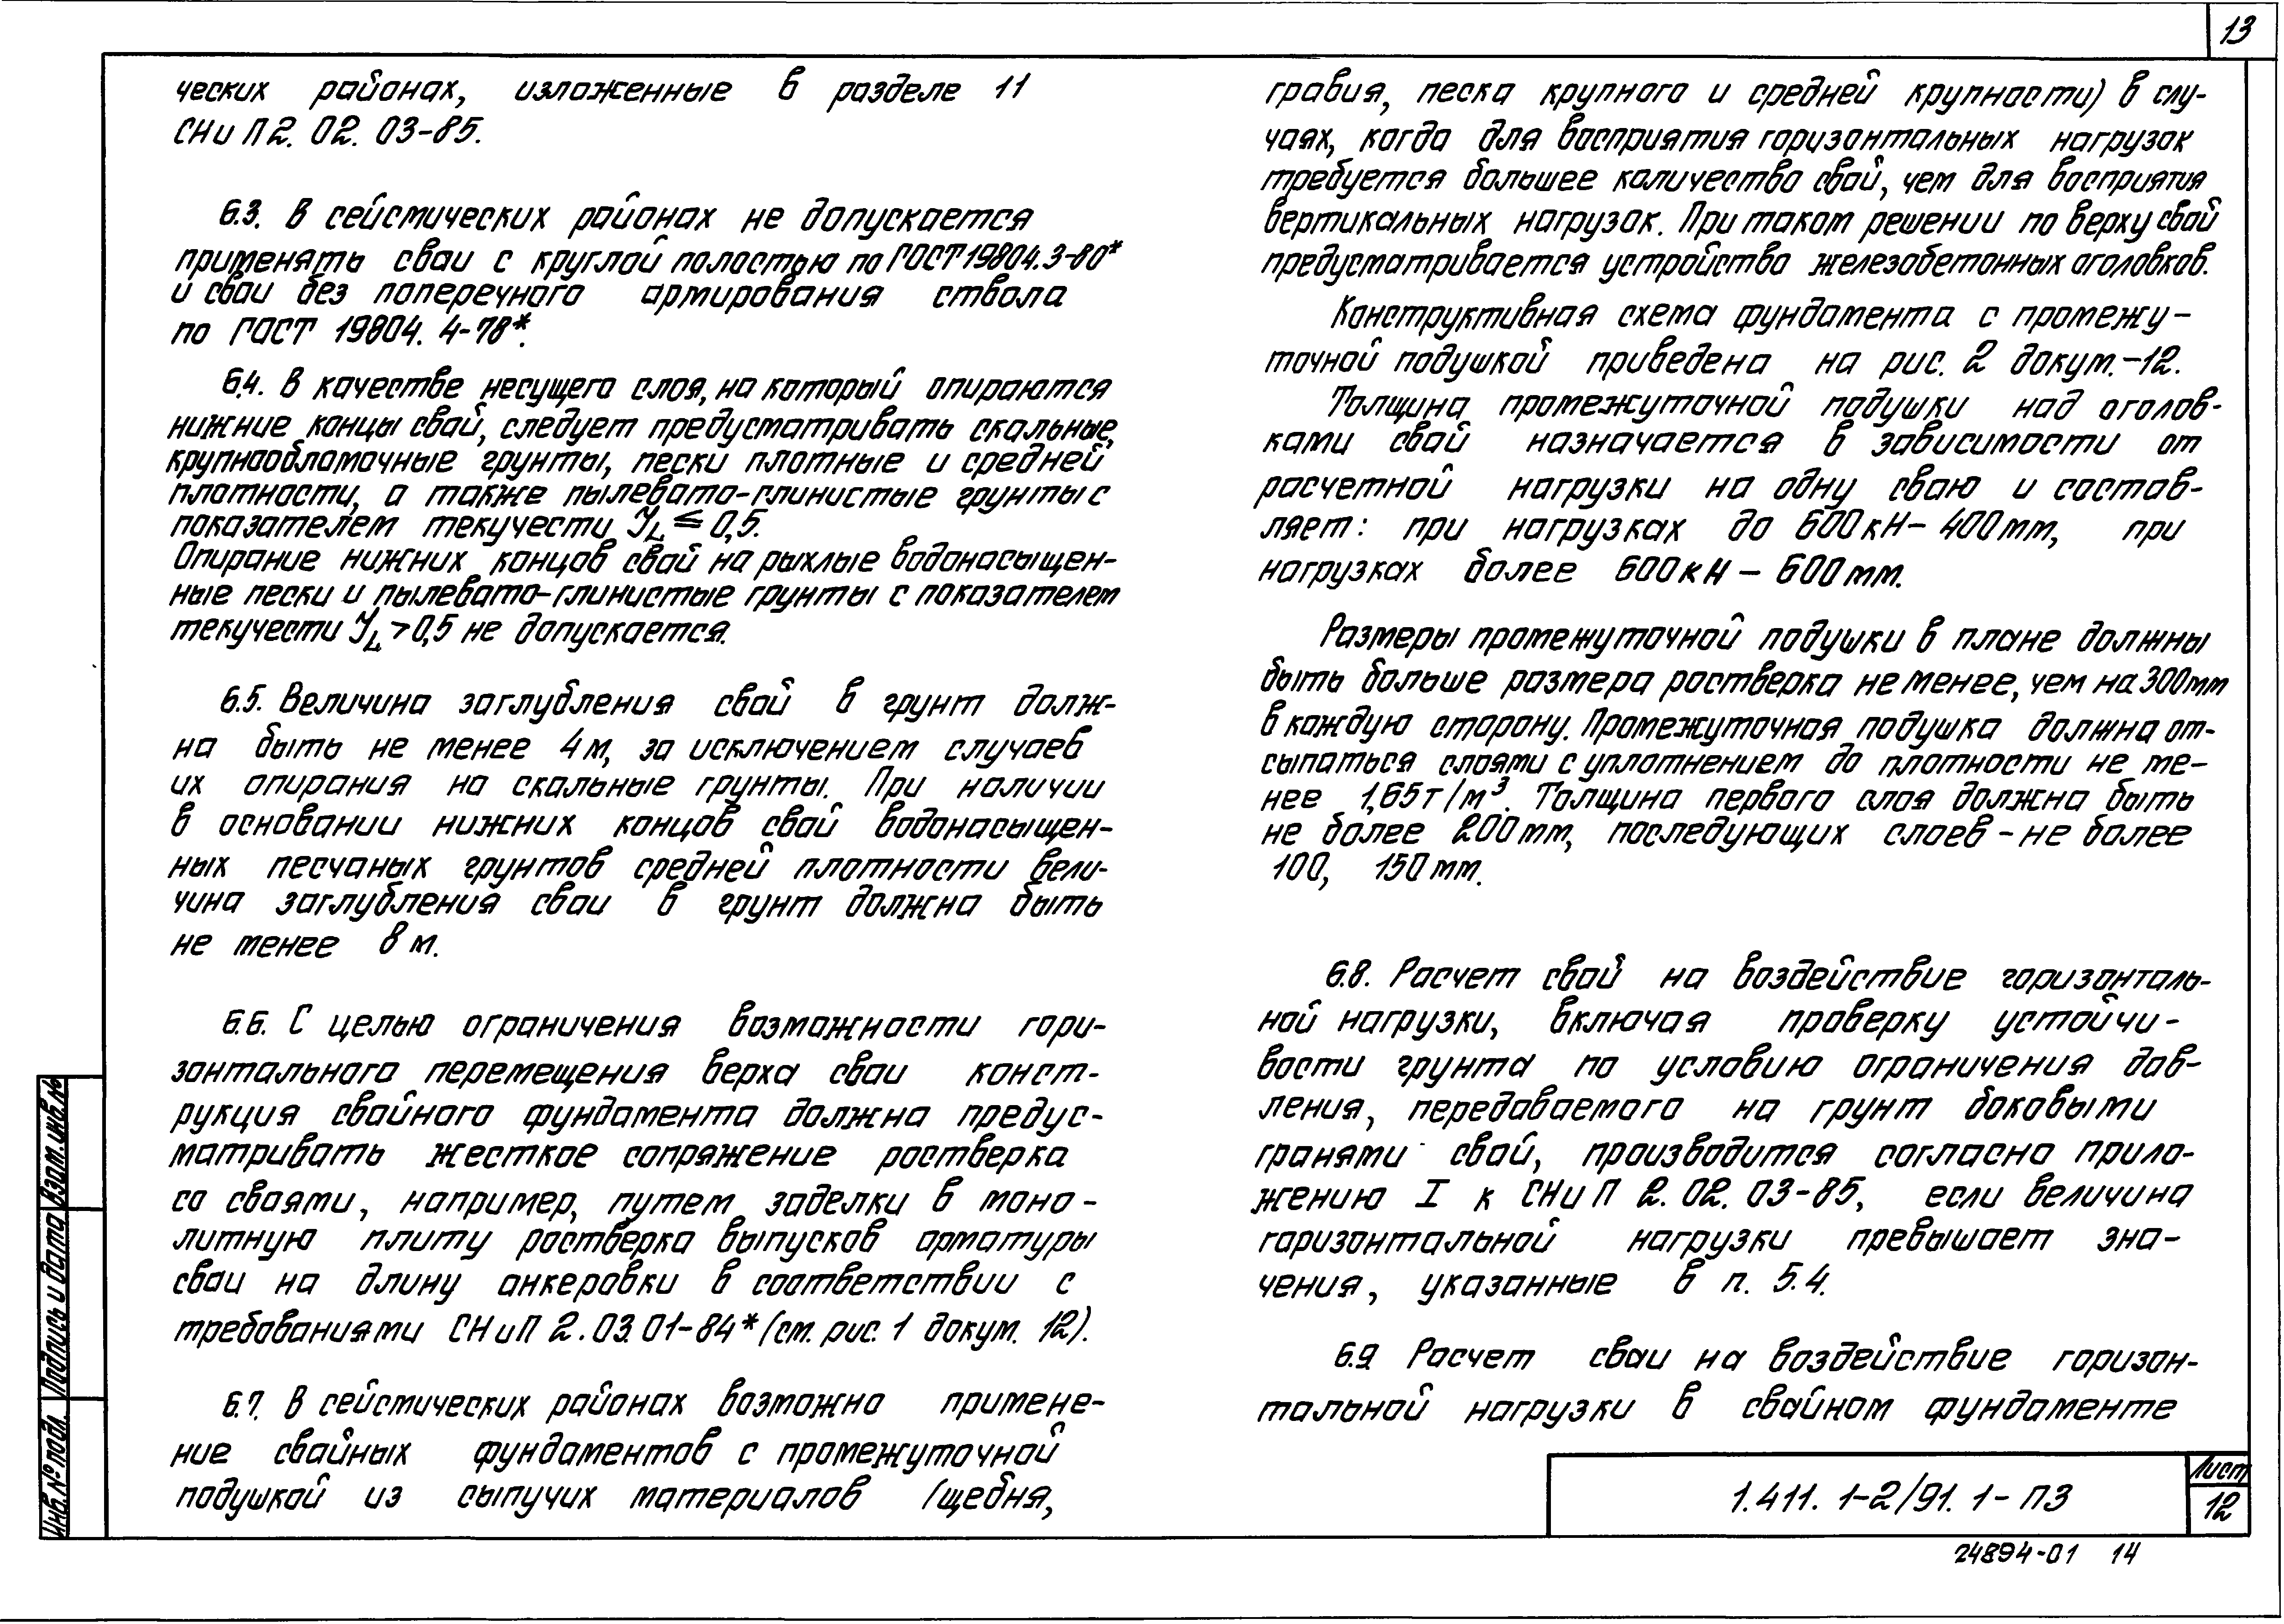 13
ческих районах, изложенные в разделе 11
СНиП 2. 02. 03-85.
6.3. В сейсмических районах не допускается
применять сваи с круглой полостью по ГОСТ 19804.3-80*
и сваи без поперечного армирования ствола
по ГОСТ 19804. 4-78*.
6.4. В качестве несущего слоя, на который опираются
нижние концы свай, следует предусматривать скальные,
крупнообломочные грунты, пески плотные и средней
плотности, а также пылевато-глинистые грунты с
показателем текучести JL ≤ 0,5.
Опирание нижних концов свай на рыхлые водонасыщен-
ные пески и пылевато-глинистые грунты с показателем
текучести JL > 0,5 не допускается.
6.5. Величина заглубления свай в грунт долж-
на быть не менее 4 м, за исключением случаев
их опирания на скальные грунты. При наличии
в основании нижних концов свай водонасыщен-
ных песчаных грунтов средней плотности вели-
чина заглубления сваи в грунт должна быть
не менее 8 м.
6.6. С целью ограничения возможности гори-
зонтального перемещения верха сваи конст-
рукция свайного фундамента должна предус-
матривать жесткое сопряжение ростверка
со сваями, например, путем заделки в моно-
литную плиту ростверка выпусков арматуры
сваи на длину анкеровки в соответствии с
требованиями СНиП 2.03.01-84* (см. рис. 1 докум. 12).
6.7. В сейсмических районах возможно примене-
ние свайных фундаментов с промежуточной
подушкой из сыпучих материалов (щебня,
гравия, песка крупного и средней крупности) в слу-
чаях, когда для восприятия горизонтальных нагрузок
требуется большее количество свай, чем для восприятия
вертикальных нагрузок. При таком решении по верху свай
предусматривается устройство железобетонных оголовков.
Конструктивная схема фундамента с промежу-
точной подушкой приведена на рис. 2 докум.-12.
Толщина промежуточной подушки над оголов-
ками свай назначается в зависимости от
расчетной нагрузки на одну сваю и состав-
ляет: при нагрузках до 600 кН - 400 мм, при
нагрузках более 600 кН - 600 мм.
Размеры промежуточной подушки в плане должны
быть больше размера ростверка не менее, чем на 300 мм
в каждую сторону. Промежуточная подушка должна от-
сыпаться слоями с уплотнением до плотности не ме-
нее 1,65 т/м³. Толщина первого слоя должна быть
не более 200 мм, последующих слоев - не более
100, 150 мм.
6.8. Расчет свай на воздействие горизонталь-
ной нагрузки, включая проверку устойчи-
вости грунта по условию ограничения дав-
ления, передаваемого на грунт боковыми
гранями свай, производится согласно прило-
жению I к СНиП 2. 02. 03-85, если величина
горизонтальной нагрузки превышает зна-
чения, указанные в п. 5.4.
6.9 Расчет сваи на воздействие горизон-
тальной нагрузки в свайном фундаменте
Взам. инв. №
Подпись и дата
Инв. № подл.
1.411. 1-2/91. 1- ПЗ
Лист
12
24894-01 14